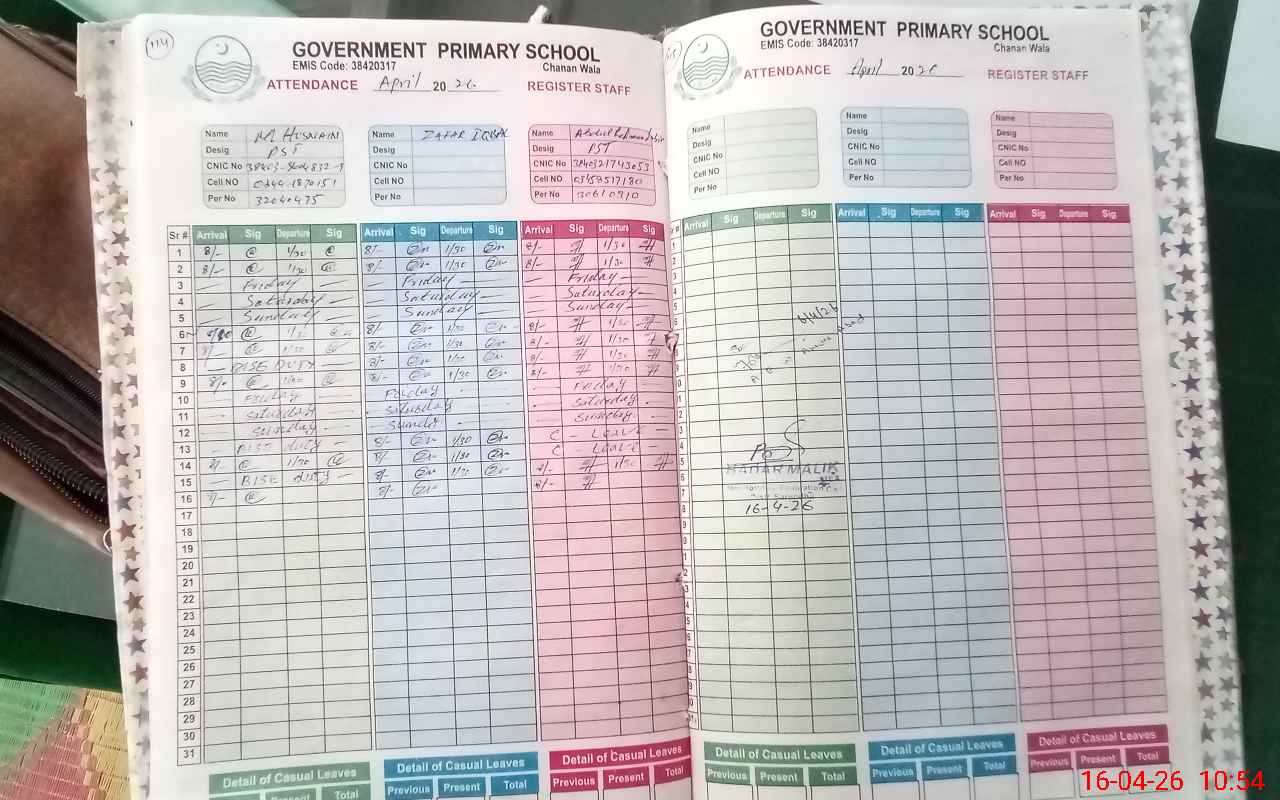 114
GOVERNMENT PRIMARY SCHOOL
EMIS Code: 38420317
Chanan Wala
ATTENDANCE April 2026 REGISTER STAFF
Name M HUSNAIN
Desig PST
CNIC No
Cell NO
Per No 32040475
Name ZAFAR IQBAL
Desig
CNIC No
Cell NO
Per No
Name
Desig PST
CNIC No 3840321743053
Cell NO 03457517180
Per No 30610910
Sr # Arrival Sig Departure Sig Arrival Sig Departure Sig Arrival Sig Departure Sig
1 8/- 1/30 8/- 1/30 8/- 1/30
2 8/- 1/30 8/- 1/30 8/- 1/30
3 — Friday — — Friday — — Friday —
4 — Saturday — — Saturday — — Saturday —
5 — Sunday — — Sunday — — Sunday —
6 1/30 8/- 1/30 8/- 1/30
7 8/- 1/30 8/- 1/30 8/- 1/30
8 — BISE DUTY — 8/- 1/30 8/- 1/30
9 8/- 1/30 8/- 1/30 8/- 1/30
10 — Friday — — Friday — — Friday —
11 — Saturday — — Saturday — — Saturday —
12 — Sunday — — Sunday — — Sunday —
13 — BISE duty — 8/- 1/30 C - Leave
14 8/- 1/30 8/- 1/30 C - Leave
15 — BISE duty — 8/- 1/30 8/- 1/30
16 8/- 8/- 8/-
17
18
19
20
21
22
23
24
25
26
27
28
29
30
31
Detail of Casual Leaves
Previous Present Total
Detail of Casual Leaves
Previous Present Total
Detail of Casual Leaves
Previous Present Total
GOVERNMENT PRIMARY SCHOOL
EMIS Code: 38420317
Chanan Wala
ATTENDANCE April 2026 REGISTER STAFF
Name
Desig
CNIC No
Cell NO
Per No
Name
Desig
CNIC No
Cell NO
Per No
Name
Desig
CNIC No
Cell NO
Per No
Arrival Sig Departure Sig Arrival Sig Departure Sig Arrival Sig Departure Sig
6/4/26
MALIK
16-4-26
Detail of Casual Leaves
Previous Present Total
Detail of Casual Leaves
Previous Present Total
Detail of Casual Leaves
Previous Present Total
16-04-26 10:54